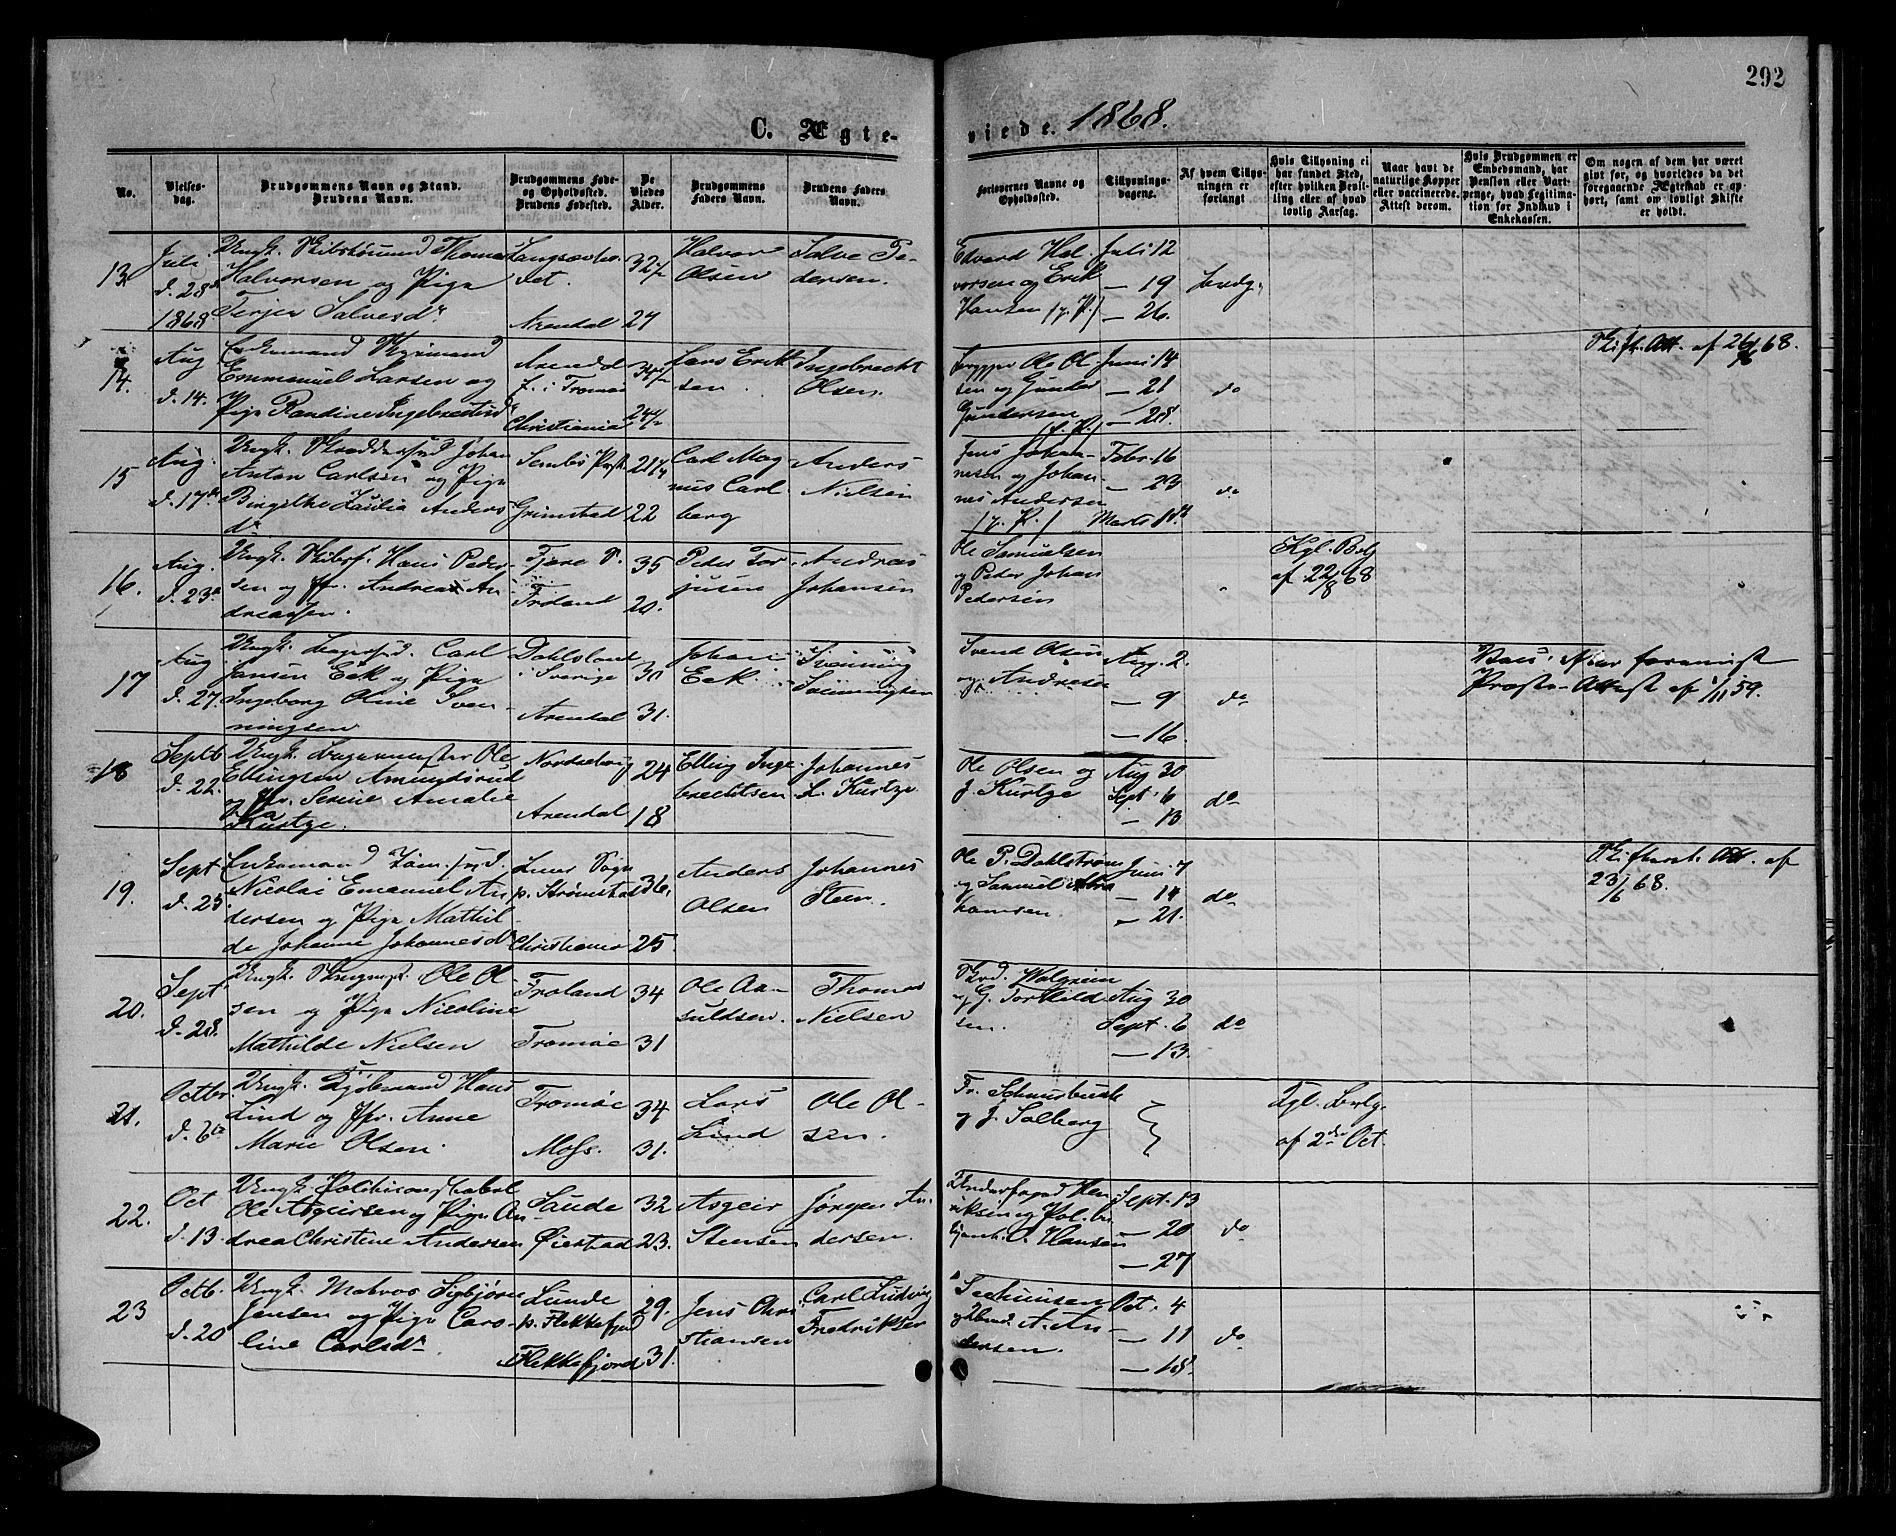 292
C. Ægte-
viede. 1868.
No.
Vielses-
dag.
Brudgommens Navn og Stand.
Brudens Navn.
Brudgommens Føde-
og Opholdssted.
Brudens Fødested.
De
Viedes
Alder.
Brudgommens
Faders Navn.
Brudens Faders
Navn.
Forlovernes Navne og
Opholdssted.
Tillysnings-
dagene.
Af hvem Tillys-
ningen er
forlangt
Hvis Tillysning ei
har fundet Sted,
efter hvilken Bevil-
ling eller af hvad
lovlig Aarsag.
Naar havt de
naturlige Kopper
eller vaccinerede.
Attest derom.
Hvis Brudgommen er
Embedsmand, har
Pension eller Vart-
penge, hvad Legitima-
tion for Indskud i
Enkekassen.
Om nogen af dem har været
gift før, og hvorledes da det
foregaaende Ægteskab er op-
hørt, samt om lovligt Skifte
er holdt.
13
Juli
d. 28d
1868
Ungk. Thomas
Halvorsen og Pige
Terjer Salvesdr
det.
Arendal
32½
27
Halvor
Olsen
Salve Pe-
dersen.
Edvard Hal-
vorsen og Erik
Hansen
Juli 12
— 19
— 26.
14.
Aug
d. 14.
Enkemand Styrmand
Emmanuel Larsen og
Pige Randine Ingebretsd
Arendal
Christiania
34½
24½
Lars Erik
sen.
Ingebrecht
Olsen.
Ole Ol-
sen og Gunder
Gundersen
Juni 14
— 21
— 28.
do
Skift. Att. af 26/6 68.
15
Aug.
d. 17d
Ungk. Johan
Anton Carlsen og Pige
Anders
dr
Grimstad
21¼
22
Carl Mag-
nus Carl-
berg
Anders
Nielsen
Jens Johan-
nesen og Johan-
nes Andersen
Febr. 16
— 23
Marts 1ste
do
16.
Aug.
d. 23d
Ungk. Hans Peder-
sen og Jfr. Andrea An-
dreasen.
Fjære P.
Froland
35
20.
Peder Tor-
jusen
Andreas
Johansen
Ole Samuelsen
og Peder Johan
Pedersen
Kgl. Bev.
af 22/8 68
17
Aug
d. 27.
Ungk. Carl
Jansen Eek og Pige
Ingeborg Oline Sven-
ningsen
Dahlsland
i Sverige
Arendal
30
31.
Johan
Eek
Svenning
Svenningsen
Svend Olsen
og Andresen
Aug. 2.
— 9
— 16.
do
Præste-Attest af 1/11 59.
18
Septb
d. 22.
Ungk. Bagermester Ole
Ellingsen Amundsrud
og Jfr. Serine Amalie
Kurtze.
Arendal
24
18
Elling Inge-
brechtsen
Johannes
L. Kurtze
Ole Olsen og
J. Kurtze
Aug 30
Sept. 6
— 13
do
19.
Sept
d. 25
Enkemand
Nicolai Emanuel An-
dersen og Pige Mathil-
de Johanne Johannesdr
p. Strømstad
Christiania
36.
25
Anders
Olsen
Johannes
Steen.
Ole P. Dahlstrøm
og Samuel Abra
hamsen.
Juni 7
— 14
— 21.
do
Att. af
23/6 68.
20.
Sept
d. 28.
Ungk. Ole Ol-
sen og Pige Nicoline
Mathilde Nielsen
Froland
Tromøe
34
31
Ole Aa-
suldsen.
Thomas
Nielsen
og G. Torkild
sen.
Aug 30
Sept. 6
— 13.
do
21.
Octbr.
d. 6te
Ungk. Hans
Lind og Jfr. Anne
Marie Olsen.
Tromøe
Moss.
34
31.
Lars
Lind
Ole Ol-
sen.
og J. Solberg
Kgl. Bevlg.
af 2den Oct.
22.
Oct
d. 13
Ungk. Politiconstabel
Ole Asgeirsen og Pige An-
drea Christine Andersen
Saude
Øiestad
32
23.
Asgeir
Stensen
Jørgen An-
dersen.
Hen-
riksen og Pol. be-
tjent. O. Hansen
Sept. 13
— 20
— 27
do
23
Octb.
d. 20
Ungk. Matros Sigbjørn
Jensen og Pige Caro-
line Carlsdr.
Lunde
p. Flekkefjord
Flekkefjord
29.
31.
Jens Chri-
stiansen
Carl Ludvig
Fredriksen
A. An-
dersen.
Oct. 4
— 11
— 18.
do